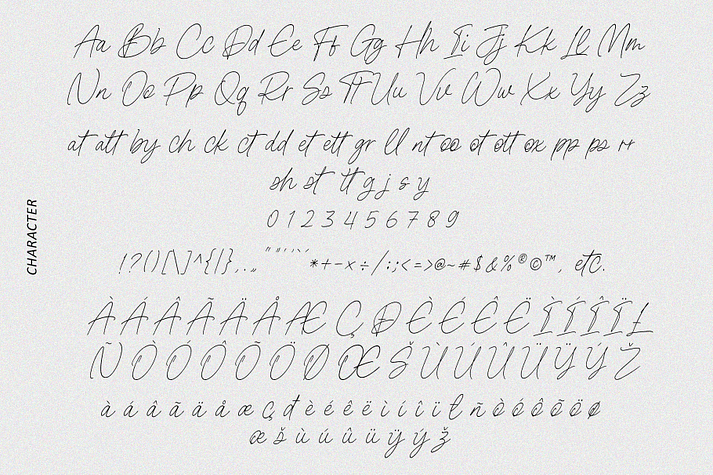 CHARACTER
Aa Bb Cc Dd Ee Ff Gg Hh Ii Jj Kk Ll Mm
Nn Oo Pp Qq Rr Ss Tt Uu Vv Ww Xx Yy Zz
at att by ch ck ct dd et ett gr ll nt oo ot ott ox pp ps rt
sh st tt g j s y
0 1 2 3 4 5 6 7 8 9
!?()[\]^{|},.„ ""''‘’ *+-×÷/:;<=>@~#$&%®©™, etc.
À Á Â Ã Ä Å Æ Ç Đ È É Ê Ë Ì Í Î Ï Ł
Ñ Ò Ó Ô Õ Ö Ø Œ Š Ù Ú Û Ü Ÿ Ý Ž
à á â ã ä å æ ç đ è é ê ë ì í î ï ł ñ ò ó ô õ ö ø
œ š ù ú û ü ÿ ý ž